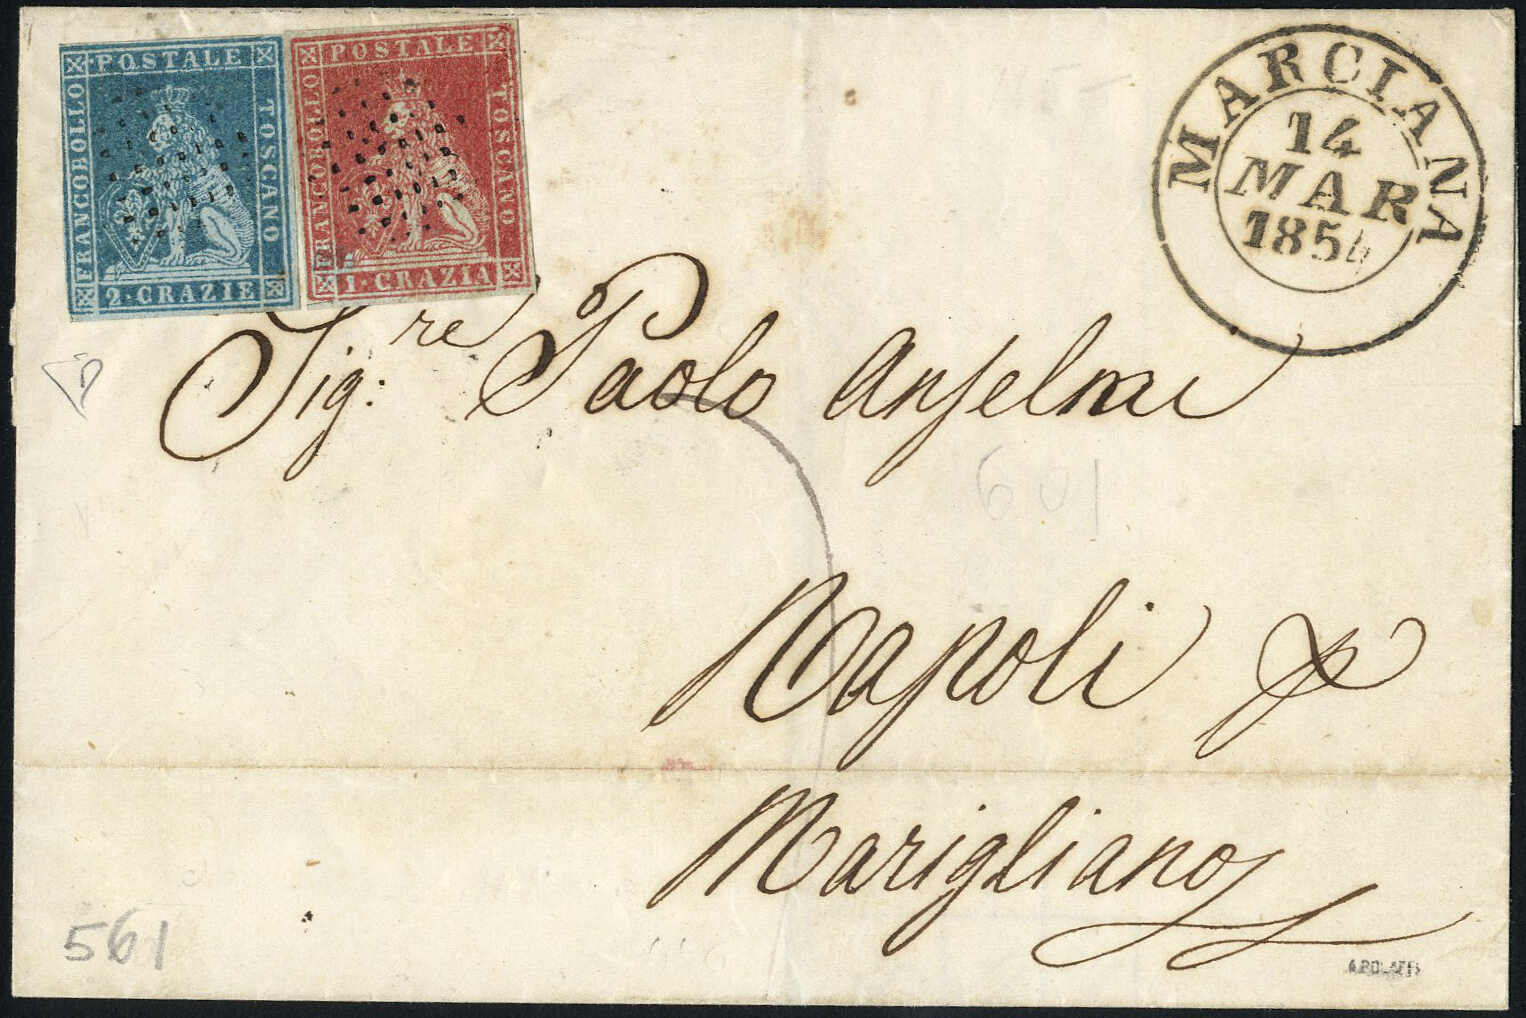 POSTALE
FRANCOBOLLO
TOSCANO
2·CRAZIE
POSTALE
FRANCOBOLLO
TOSCANO
1·CRAZIA
MARCIANA
14
MAR
1854
Sig:re Paolo Anselmi
601
Napoli p
Marigliano
561